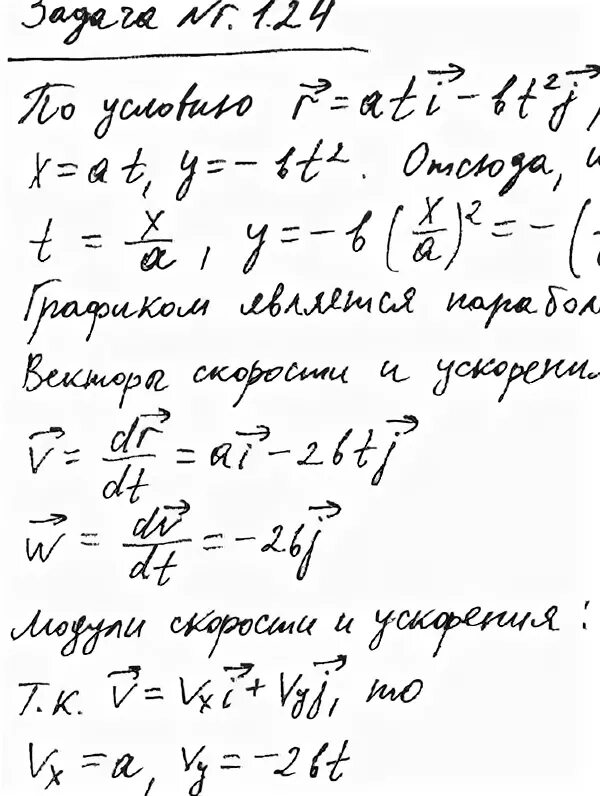 Задача № 1.24
По условию r⃗ = at i⃗ − bt² j⃗,
x = at, y = −bt². Отсюда,
t = x/a, y = −b(x/a)² = −(
Графиком является парабол
Векторы скорости и ускорени
v⃗ = dr⃗/dt = a i⃗ − 2bt j⃗
w⃗ = dv⃗/dt = −2b j⃗
Модули скорости и ускорения:
Т.к. v⃗ = Vx i⃗ + Vy j⃗, то
Vx = a, Vy = −2bt